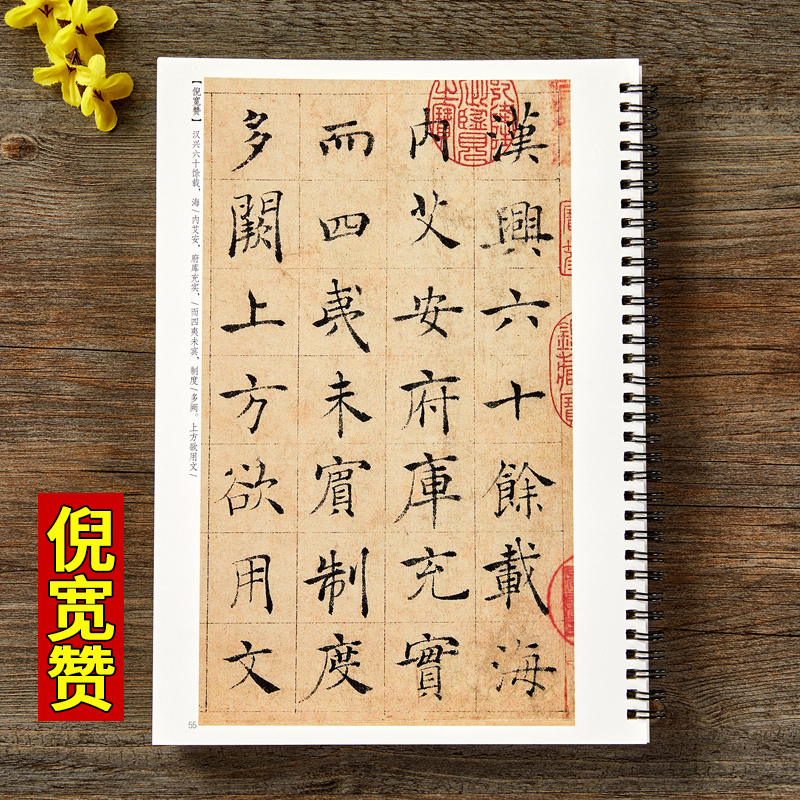 漢興六十餘載海
内艾安府庫充實
而四夷未賓制度
多闕上方欲用文
【倪宽赞】 汉兴六十馀载，海/内艾安，府库充实，/而四夷未宾，制度/多阙。上方欲用文/
55
倪宽赞